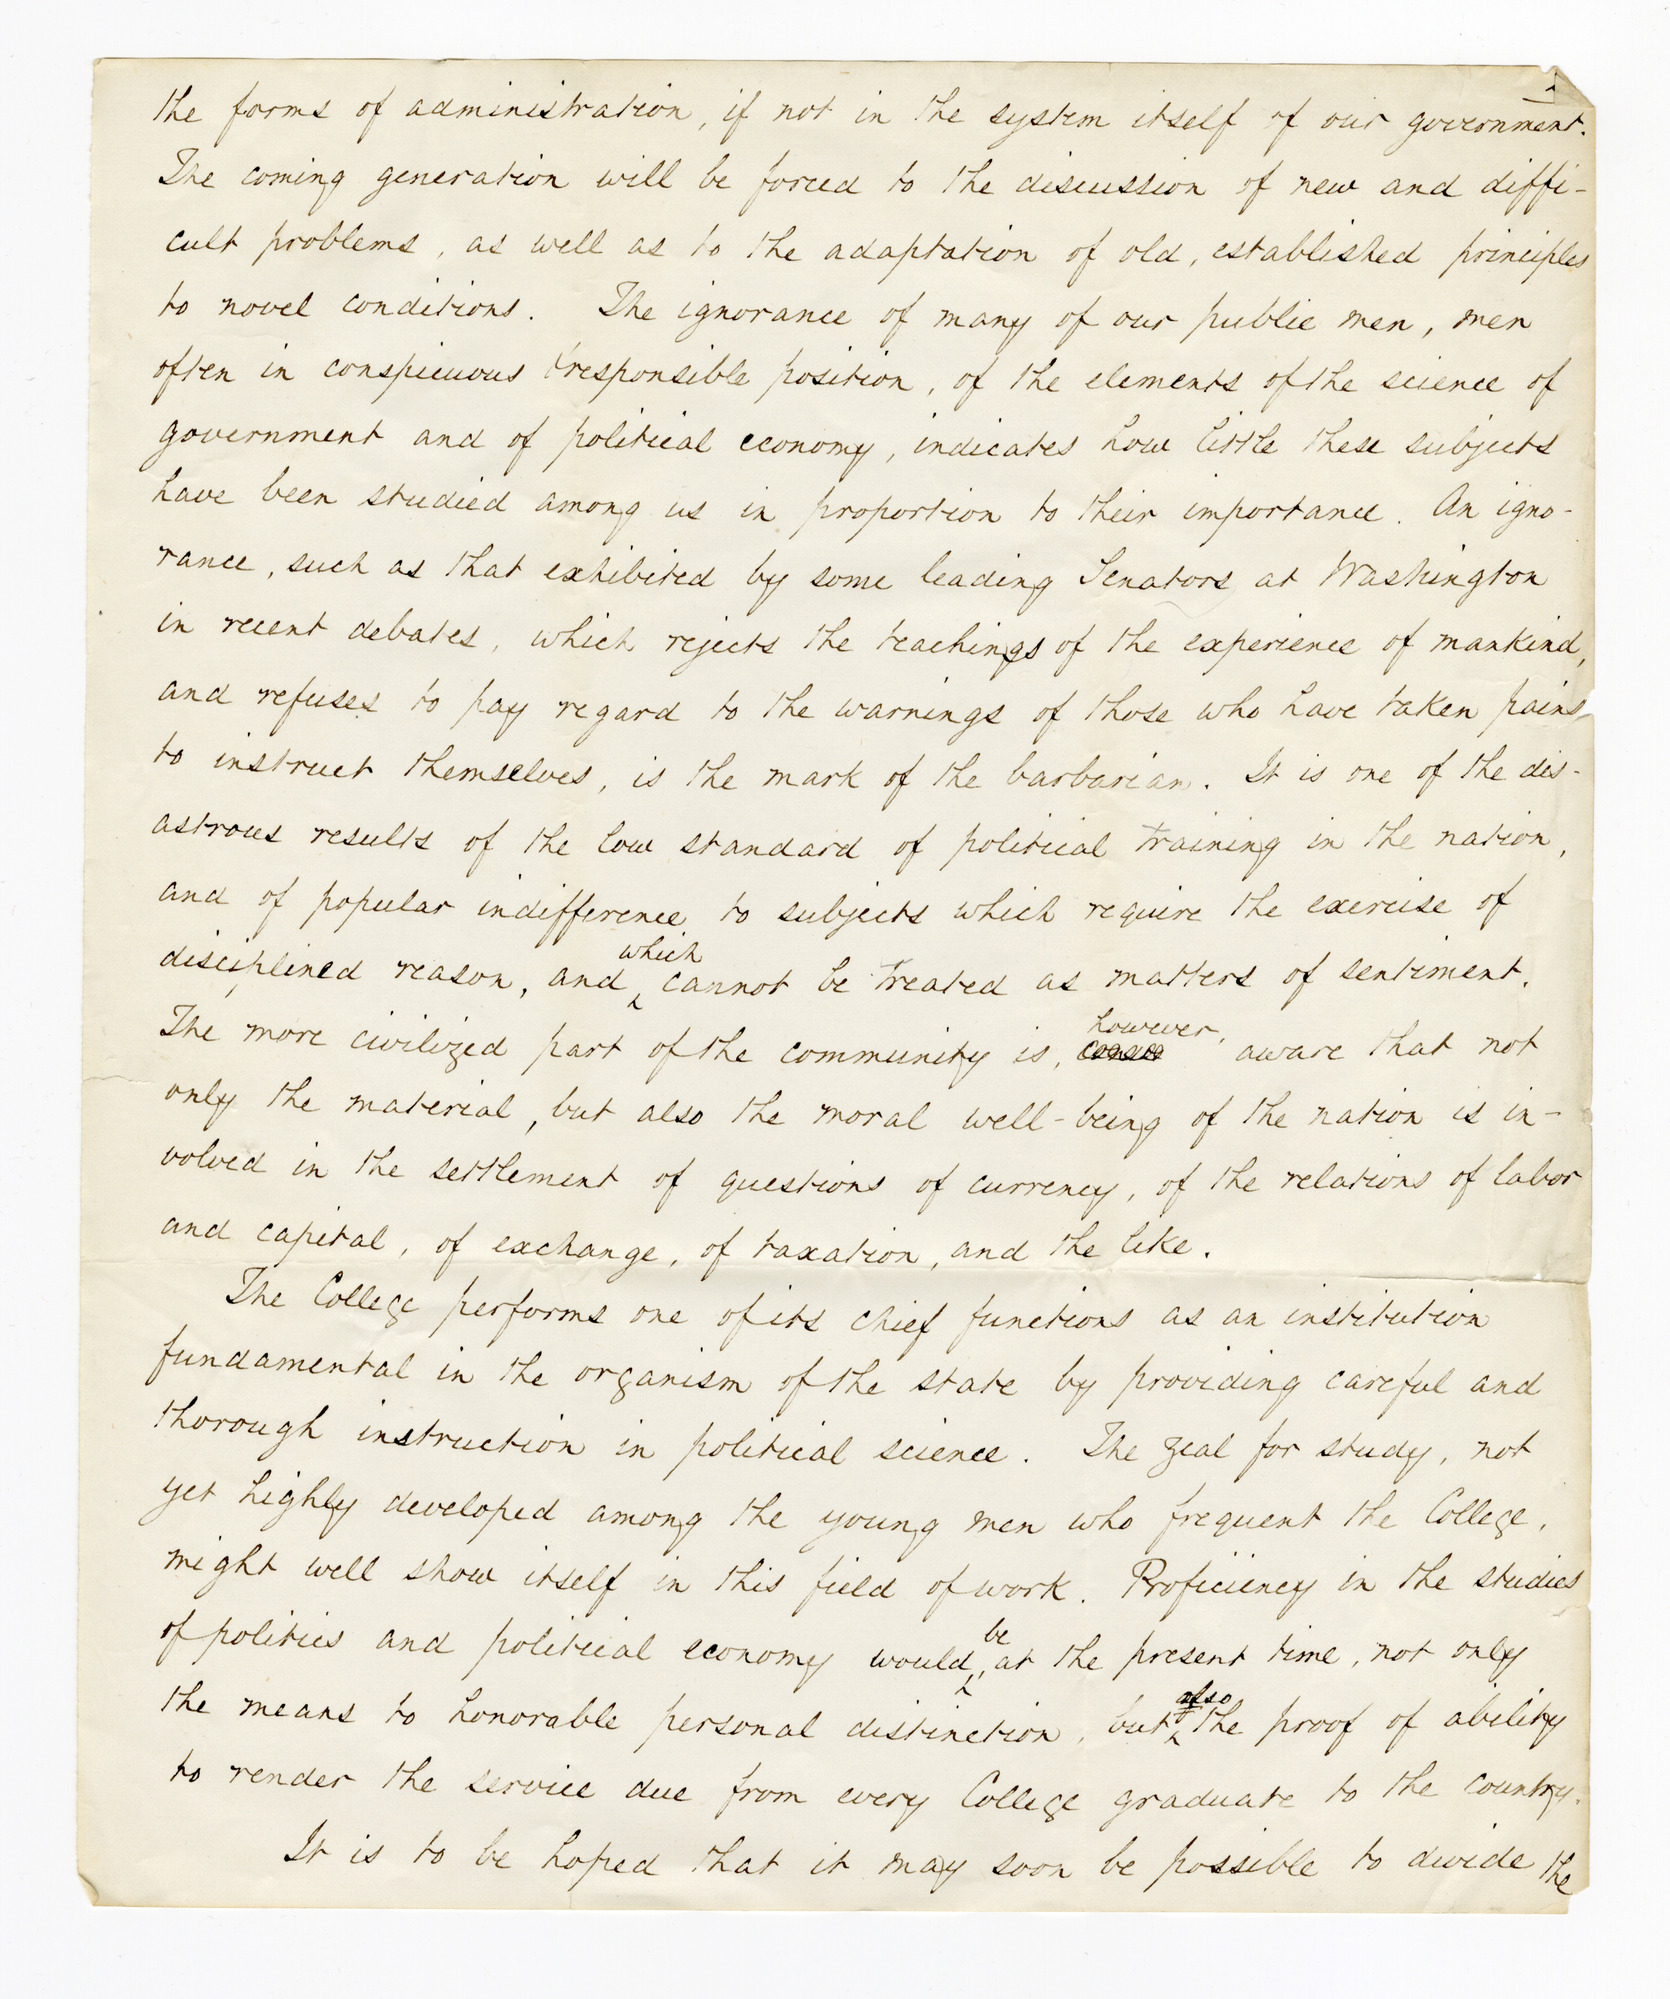 the forms of administration, if not in the system itself of our government.
The coming generation will be forced to the discussion of new and diffi-
cult problems, as well as to the adaptation of old, established principles
to novel conditions. The ignorance of many of our public men, men
often in conspicuous & responsible position, of the elements of the science of
government and of political economy, indicates how little these subjects
have been studied among us in proportion to their importance. An igno-
rance, such as that exhibited by some leading Senators at Washington
in recent debates, which rejects the teachings of the experience of mankind,
and refuses to pay regard to the warnings of those who have taken pains
to instruct themselves, is the mark of the barbarian. It is one of the dis-
astrous results of the low standard of political training in the nation,
and of popular indifference to subjects which require the exercise of
disciplined reason, and which cannot be treated as matters of sentiment.
The more civilized part of the community is, however, aware that not
only the material, but also the moral well-being of the nation is in-
volved in the settlement of questions of currency, of the relations of labor
and capital, of exchange, of taxation, and the like.
The College performs one of its chief functions as an institution
fundamental in the organism of the state by providing careful and
thorough instruction in political science. The zeal for study, not
yet highly developed among the young men who frequent the College,
might well show itself in this field of work. Proficiency in the studies
of politics and political economy would be, at the present time, not only
the means to honorable personal distinction, but also the proof of ability
to render the service due from every College graduate to the country.
It is to be hoped that it may soon be possible to divide the